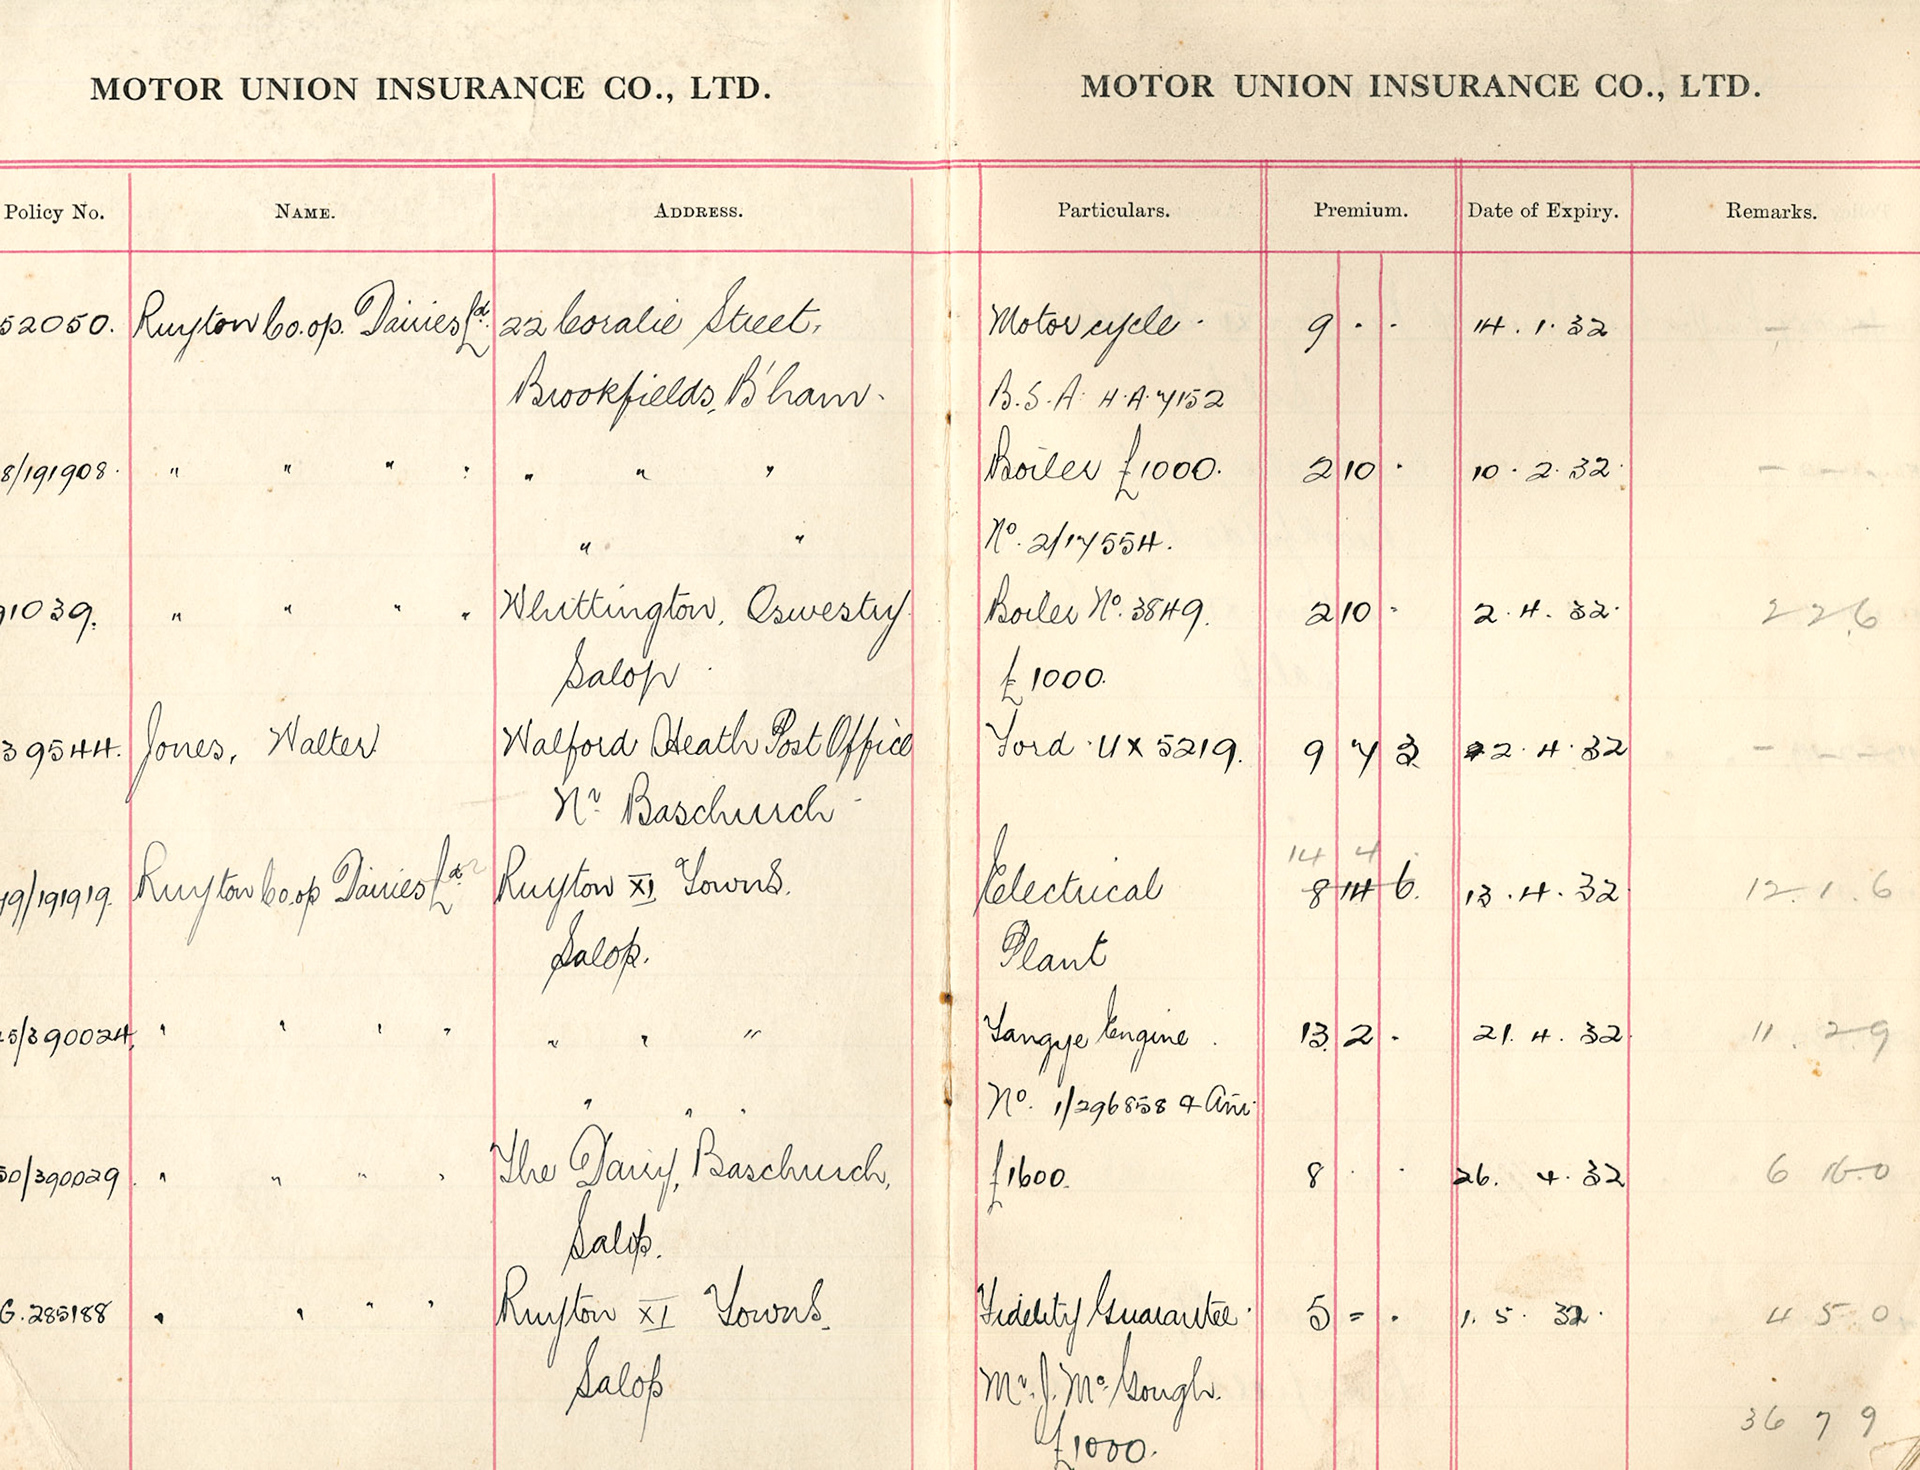 MOTOR UNION INSURANCE CO., LTD. MOTOR UNION INSURANCE CO., LTD.
Policy No. NAME. ADDRESS. Particulars. Premium. Date of Expiry. Remarks.
52050. Ruyton Co.op. Dairies Ld. 22 Coralie Street, Motor cycle 9 . . 14.1.32 –
Brookfields, B'ham. B.S.A. H.A. 7152
8/191908. " " " " " " " Boiler £1000. 2 10 . 10.2.32
" " No. 2/17554.
91039. " " " " Whittington, Oswestry. Boiler No. 3849. 2 10 - 2.4.32. 2 2 6
Salop £1000.
39544. Jones, Walter Walford Heath Post Office Ford UX 5219. 9 7 3 22.4.32
Nr Baschurch
14 4
49/191919. Ruyton Co.op Dairies Ld. Ruyton XI Towns. Electrical 8 14 6. 13.4.32 12.1.6
Salop. Plant
5/390024, " " " " " " " Tangye Engine. 13. 2 . 21.4.32 11. 2 9
" " " No. 1/296858 &
50/390029 " " " " The Dairy, Baschurch, £1600. 8 . . 26. 4.32 6 16 0
Salop.
G.285188 " " " " Ruyton XI Towns. Fidelity Guarantee. 5 = . 1.5.32. 4 5 0
Salop Mr. J. Mc Gough.
£1000. 36 7 9